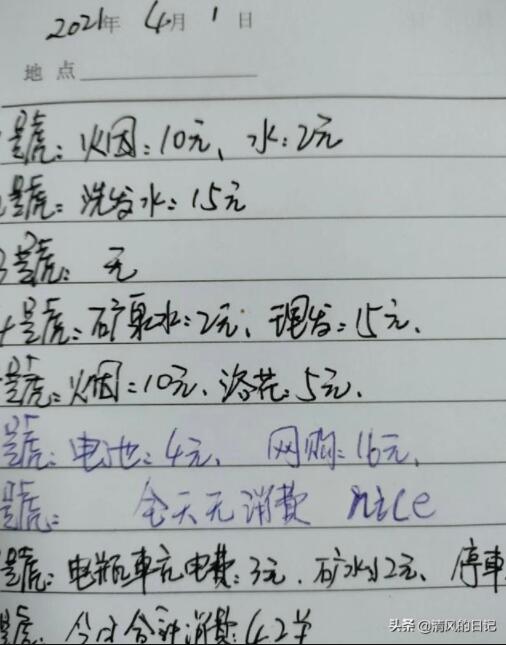 2021年 4月 1 日
地点
号: 火因: 10元、水: 2元
号: 洗发水: 15元
3号: 无
4号: 矿泉水: 2元、理发: 15元.
号: 火因: 10元、洛花: 5元.
号: 电池: 4元, 网购: 16元,
号: 全天无消费 nice
号: 电瓶車充电费: 3元. 矿水2元、停車
号: 今日合计消费: 42
头条 @清风的日记